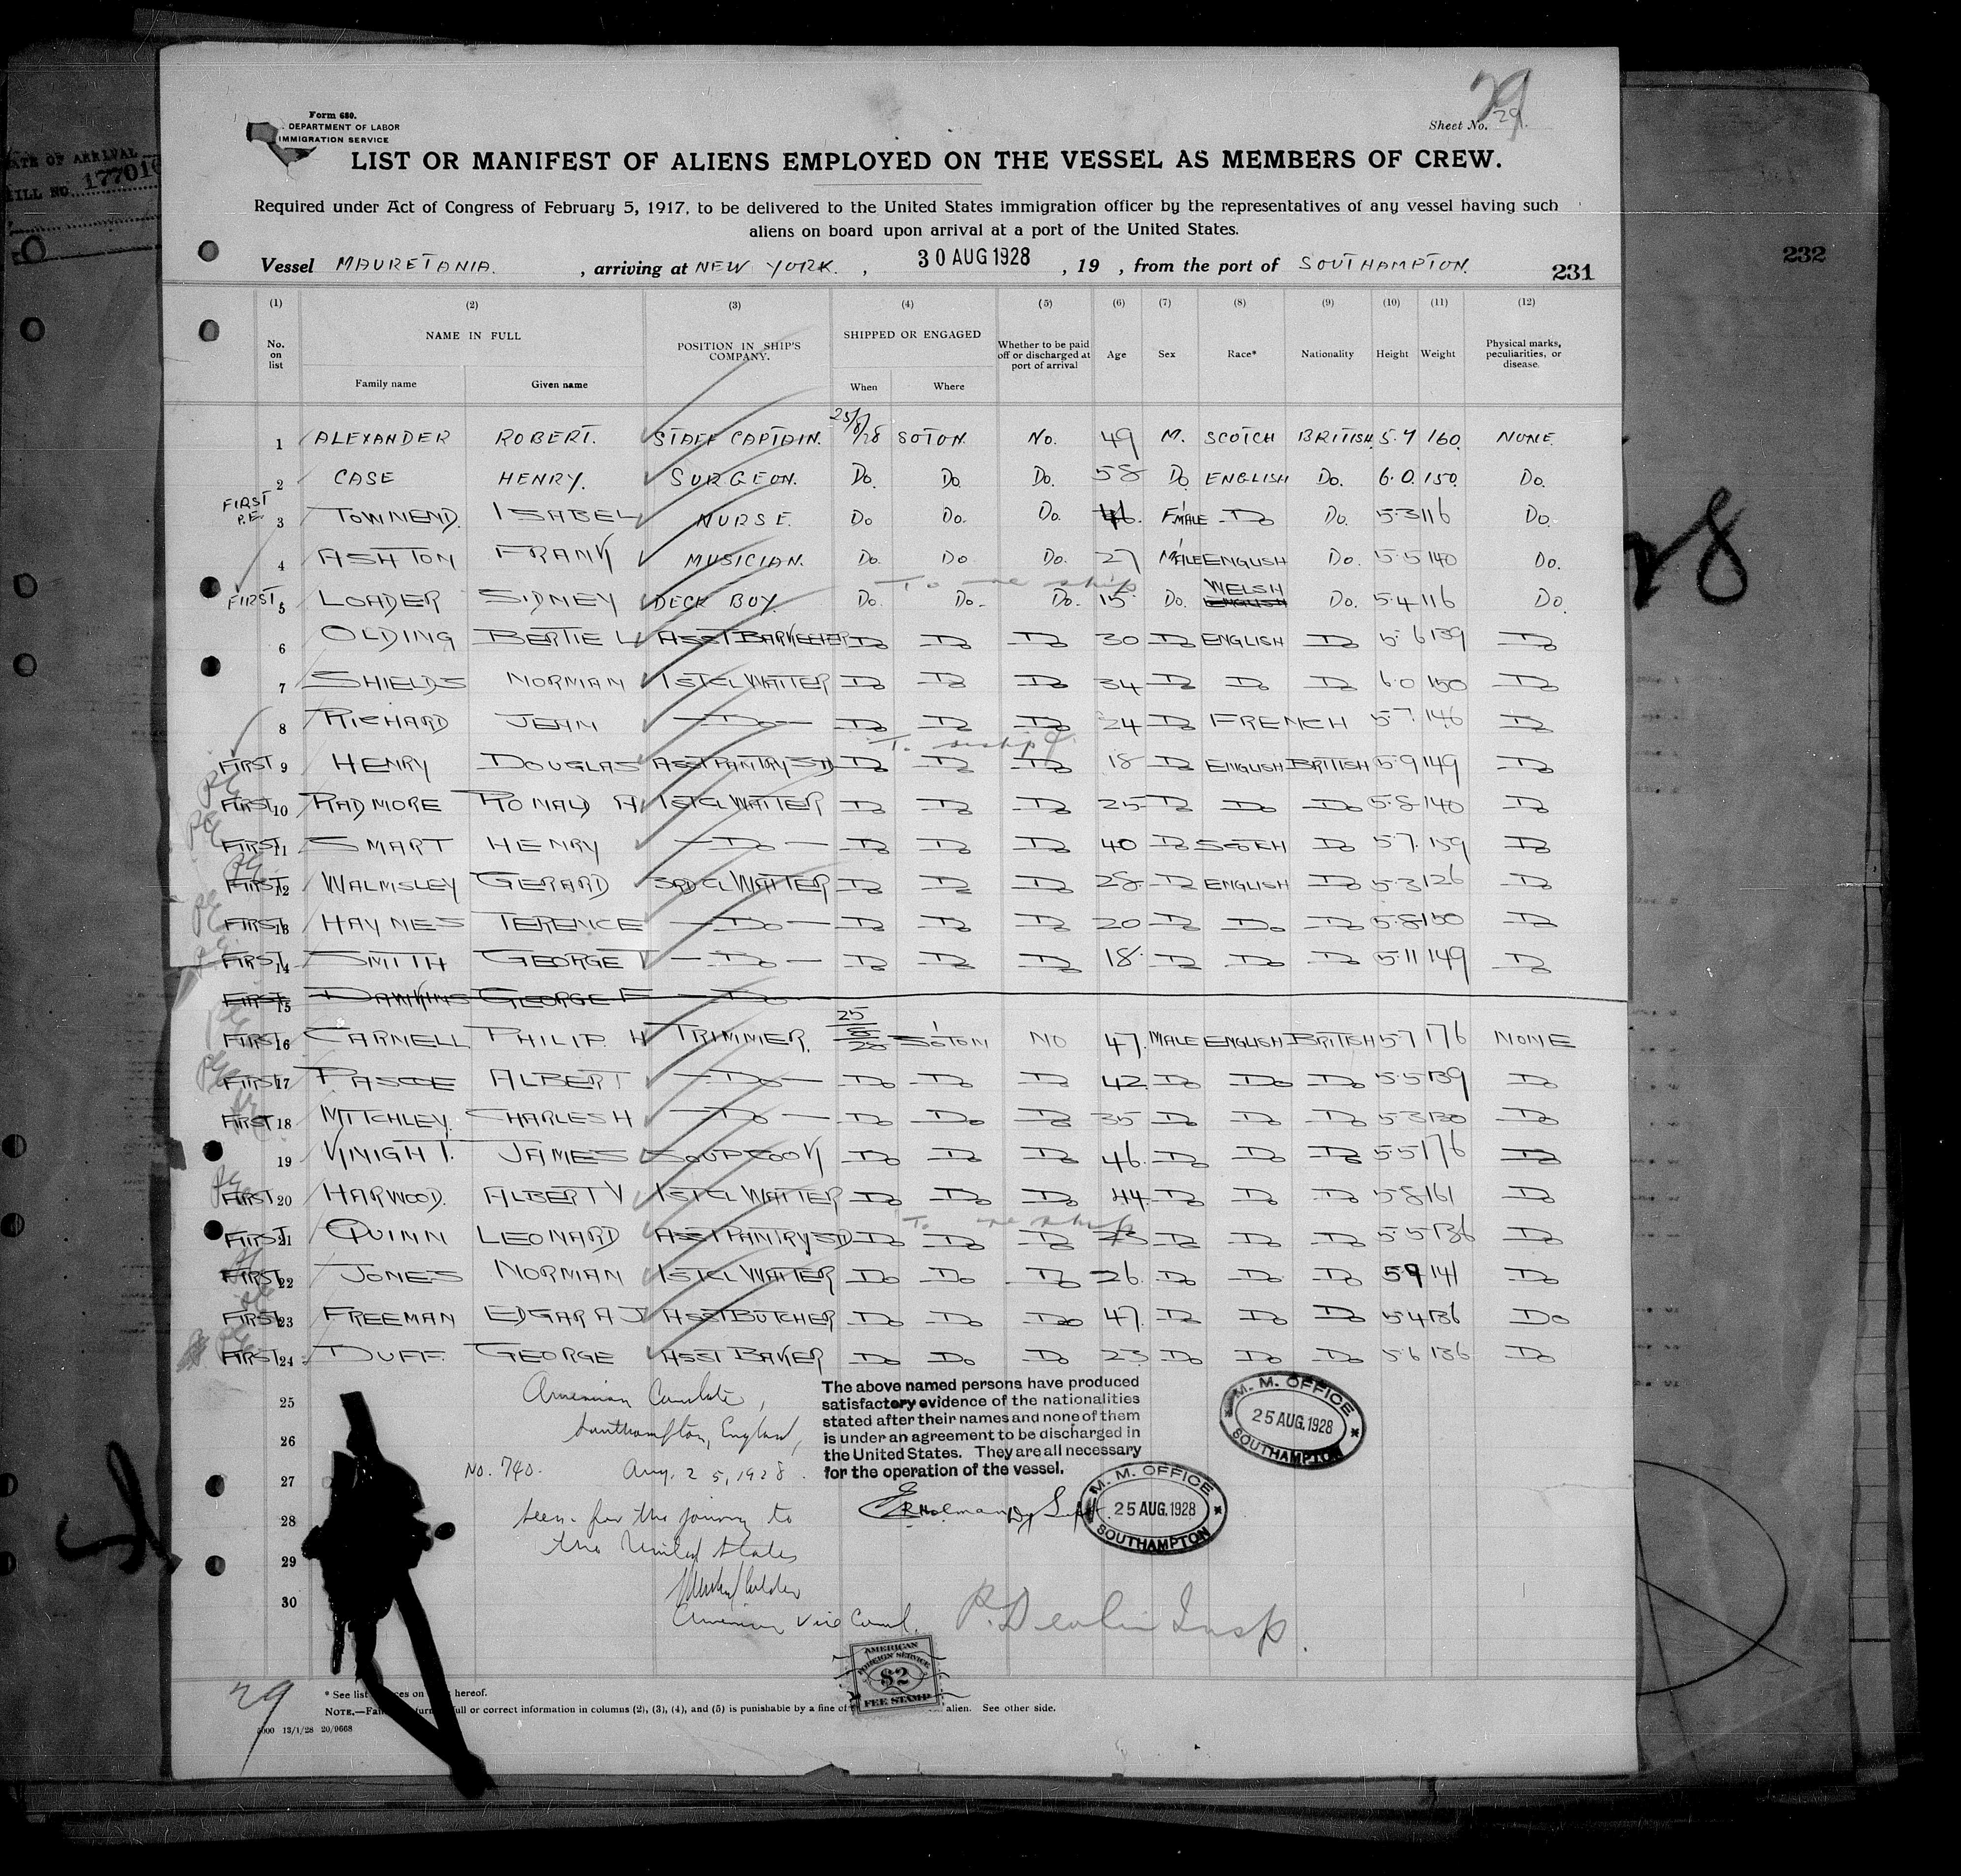 29
Form 680.
DEPARTMENT OF LABOR
IMMIGRATION SERVICE
Sheet No. 29.
LIST OR MANIFEST OF ALIENS EMPLOYED ON THE VESSEL AS MEMBERS OF CREW.
Required under Act of Congress of February 5, 1917, to be delivered to the United States immigration officer by the representatives of any vessel having such
aliens on board upon arrival at a port of the United States.
Vessel MAURETANIA. , arriving at NEW YORK. , 30 AUG 1928 , 19 , from the port of SOUTHAMPTON. 231
232
DATE OF ARRIVAL
(1) (2) (3) (4) (5) (6) (7) (8) (9) (10) (11) (12)
No. on list NAME IN FULL Family name Given name POSITION IN SHIP'S COMPANY. SHIPPED OR ENGAGED When Where Whether to be paid off or discharged at port of arrival Age Sex Race* Nationality Height Weight Physical marks, peculiarities, or disease.
1 ALEXANDER ROBERT. STAFF CAPTAIN. 25/8/28 SOTON. No. 49 M. SCOTCH BRITISH 5.7 160. NONE.
2 CASE HENRY. SURGEON. Do. Do Do. 58 Do ENGLISH Do. 6.0. 150. Do.
FIRST P.E. 3 TOWNEND. ISABEL NURSE. Do Do. Do. 46. FMALE Do Do. 5.3 116 Do.
4 ASHTON FRANK MUSICIAN. Do. Do Do. 27 MALE ENGLISH Do. 5.5 140 Do.
FIRST 5 LOADER SIDNEY DECK BOY. Do. Do. Do. 15 Do. WELSH ENGLISH Do. 5.4 116 Do.
6 OLDING BERTIE W ASST BARKEEPER Do Do Do 30 Do ENGLISH Do 5.6 139 Do
7 SHIELDS NORMAN 1ST CL WAITER Do Do Do 34 Do Do Do 6.0 150 Do
8 RICHARD JEAN Do Do Do Do 24 Do FRENCH 5.7. 146 Do
FIRST 9 HENRY DOUGLAS ASST PANTRY STD Do Do Do 18 Do ENGLISH BRITISH 5.9 149 Do
FIRST 10 RADMORE RONALD A 1ST CL WAITER Do Do Do 25 Do Do Do 5.8 140 Do
FIRST 11 SMART HENRY Do Do Do Do 40 Do SCOTCH Do 5.7. 159 Do
FIRST 12 WALMSLEY GERARD 3RD CL WAITER Do Do Do 28. Do ENGLISH Do 5.3 126 Do
FIRST 13 HAYNES TERENCE Do Do Do Do 20 Do Do Do 5.8 150 Do
FIRST 14 SMITH GEORGE T Do Do Do Do 18. Do Do Do 5.11 149 Do
FIRST 15 DAWKINS GEORGE F Do
FIRST 16 CARNELL PHILIP. H TRIMMER. 25/8/28 SOTON NO 47. MALE ENGLISH BRITISH 5.7 176 NONE
FIRST 17 PASCOE ALBERT Do Do Do Do 42 Do Do Do 5.5 139 Do
FIRST 18 MITCHLEY. CHARLES H Do Do Do Do 35 Do Do Do 5.3 130 Do
19 KNIGHT. JAMES SOUP COOK Do Do Do 46. Do Do Do 5.5 176 Do
FIRST 20 HARWOOD. ALBERT V 1ST CL WAITER Do Do Do 44 Do Do Do 5.8 161 Do
FIRST 21 QUINN LEONARD ASST PANTRY STD Do Do Do Do Do Do 5.5 136 Do
FIRST 22 JONES NORMAN 1ST CL WAITER Do Do Do 26. Do Do Do 5.9 141 Do
FIRST 23 FREEMAN EDGAR A J ASST BUTCHER Do Do Do 47. Do Do Do 5.4 136 Do
FIRST 24 DUFF. GEORGE ASST BAKER Do Do Do 23 Do Do Do 5.6 136 Do
25
26
27
28
29
30
American Consulate,
Southampton, England,
No. 740. Aug. 25, 1928.
Seen for the journey to
the United States
American Vice Consul.
The above named persons have produced
satisfactory evidence of the nationalities
stated after their names and none of them
is under an agreement to be discharged in
the United States. They are all necessary
for the operation of the vessel.
M. M. OFFICE
25 AUG. 1928
SOUTHAMPTON
M. M. OFFICE
25 AUG. 1928
SOUTHAMPTON
P. Devlin Insp.
AMERICAN
FOREIGN SERVICE
$2
FEE STAMP
29
* See list hereof.
NOTE. full or correct information in columns (2), (3), (4), and (5) is punishable by a fine of alien. See other side.
13/1/28 20/9668